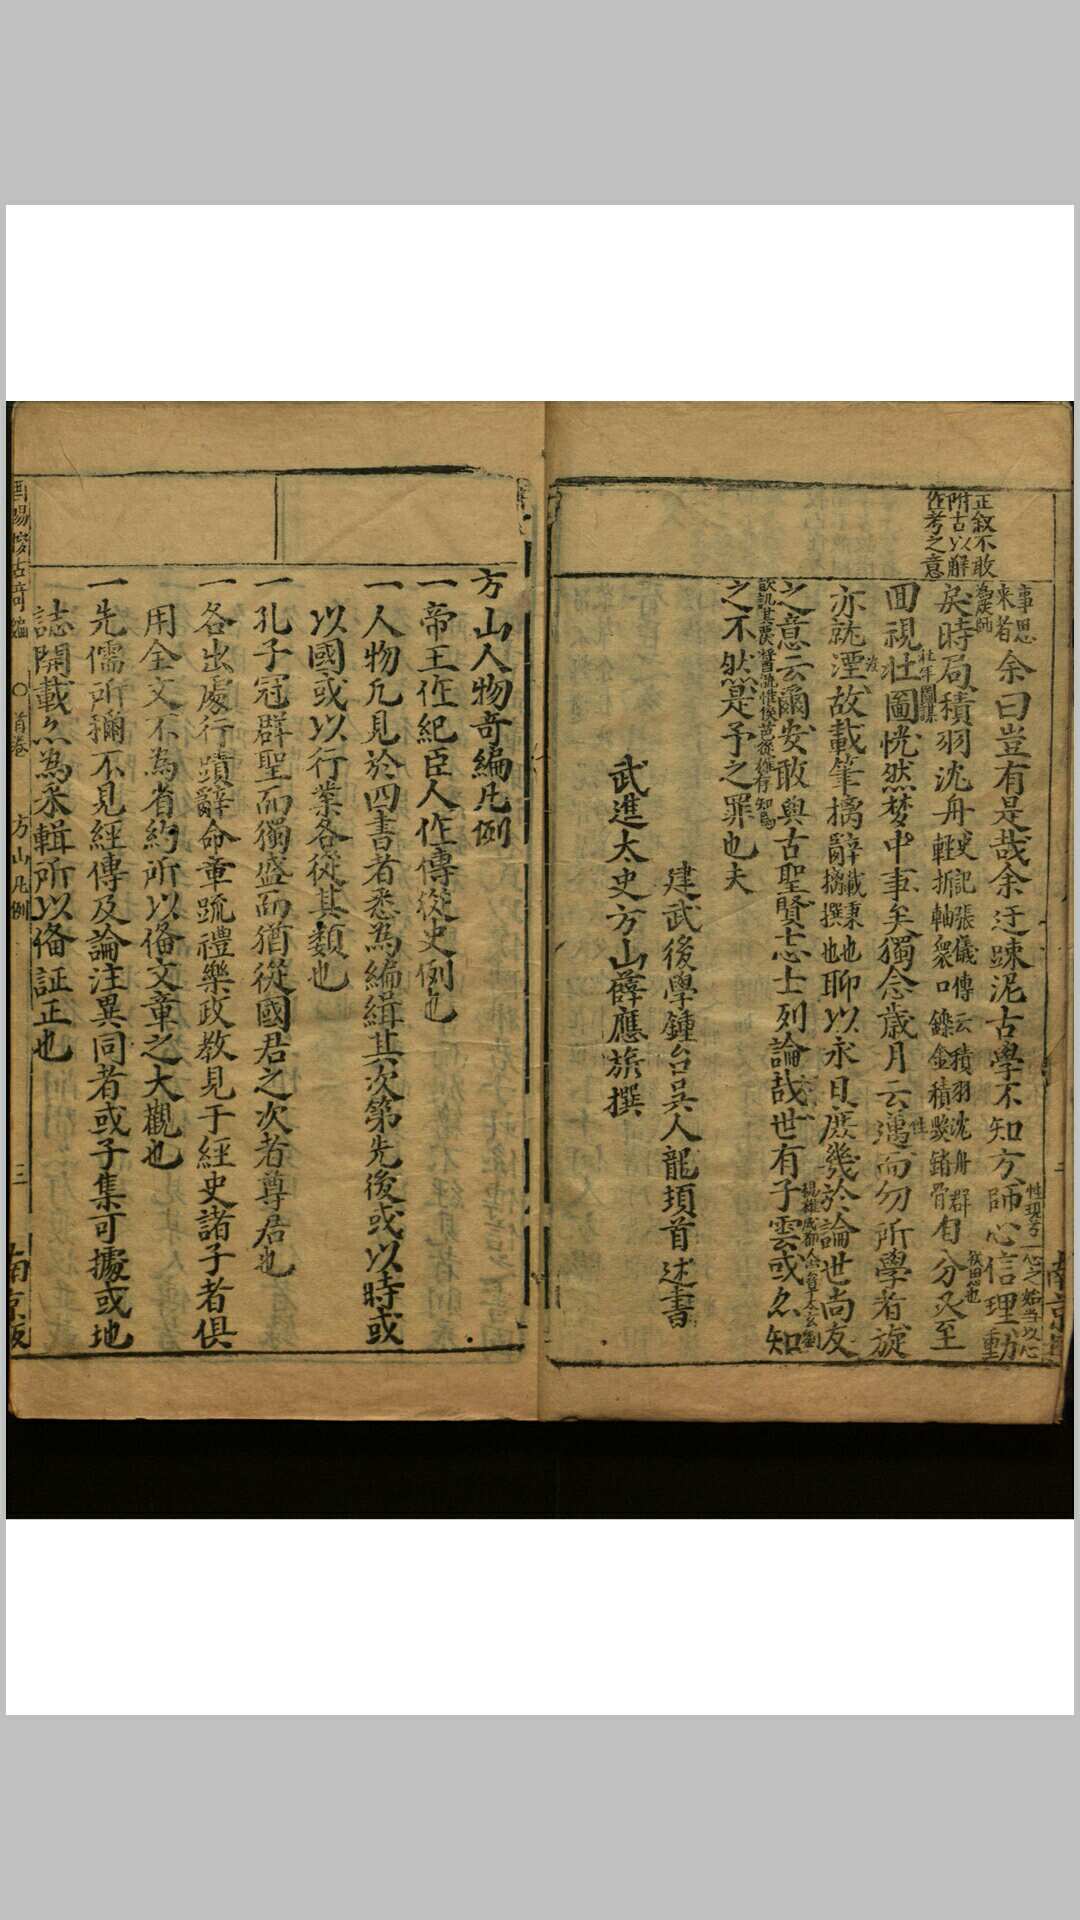 正叙不敢
附古以解
作考之意
事思
来者
余曰豈有是哉余迂踈泥古學不知方師心信理動
矣時局積羽沈舟
史記張儀傳云積羽沈舟群
輕折軸衆口鑠金積毀銷骨
自分灰至
囬視壮圖恍然梦中事矣獨念歲月云邁而勿所學者旋
亦就湮故載筆摛辭
載秉也
摛撰也
聊以永日庶幾於論世尚友
之意云爾安敢與古聖賢志士列論哉世有子雲或忽知
之不然是予之罪也夫
建武後學鍾台吳人龍頊首述書
武進太史方山薛應旂撰
方山人物竒編凡例
一帝王作紀臣人作傳從史例也
一人物凡見於四書者悉為編緝其次第先後或以時或
以國或以行業各從其類也
一孔子冠群聖而獨盛而猶從國君之次者尊君也
一各出處行蹟辭命章疏禮樂政教見于經史諸子者俱
用全文不為省約所以俻文章之大觀也
一先儒所稱不見經傳及論注異同者或子集可據或地
誌開載忽為釆輯所以俻証正也
首卷
方山凡例
三
南京板